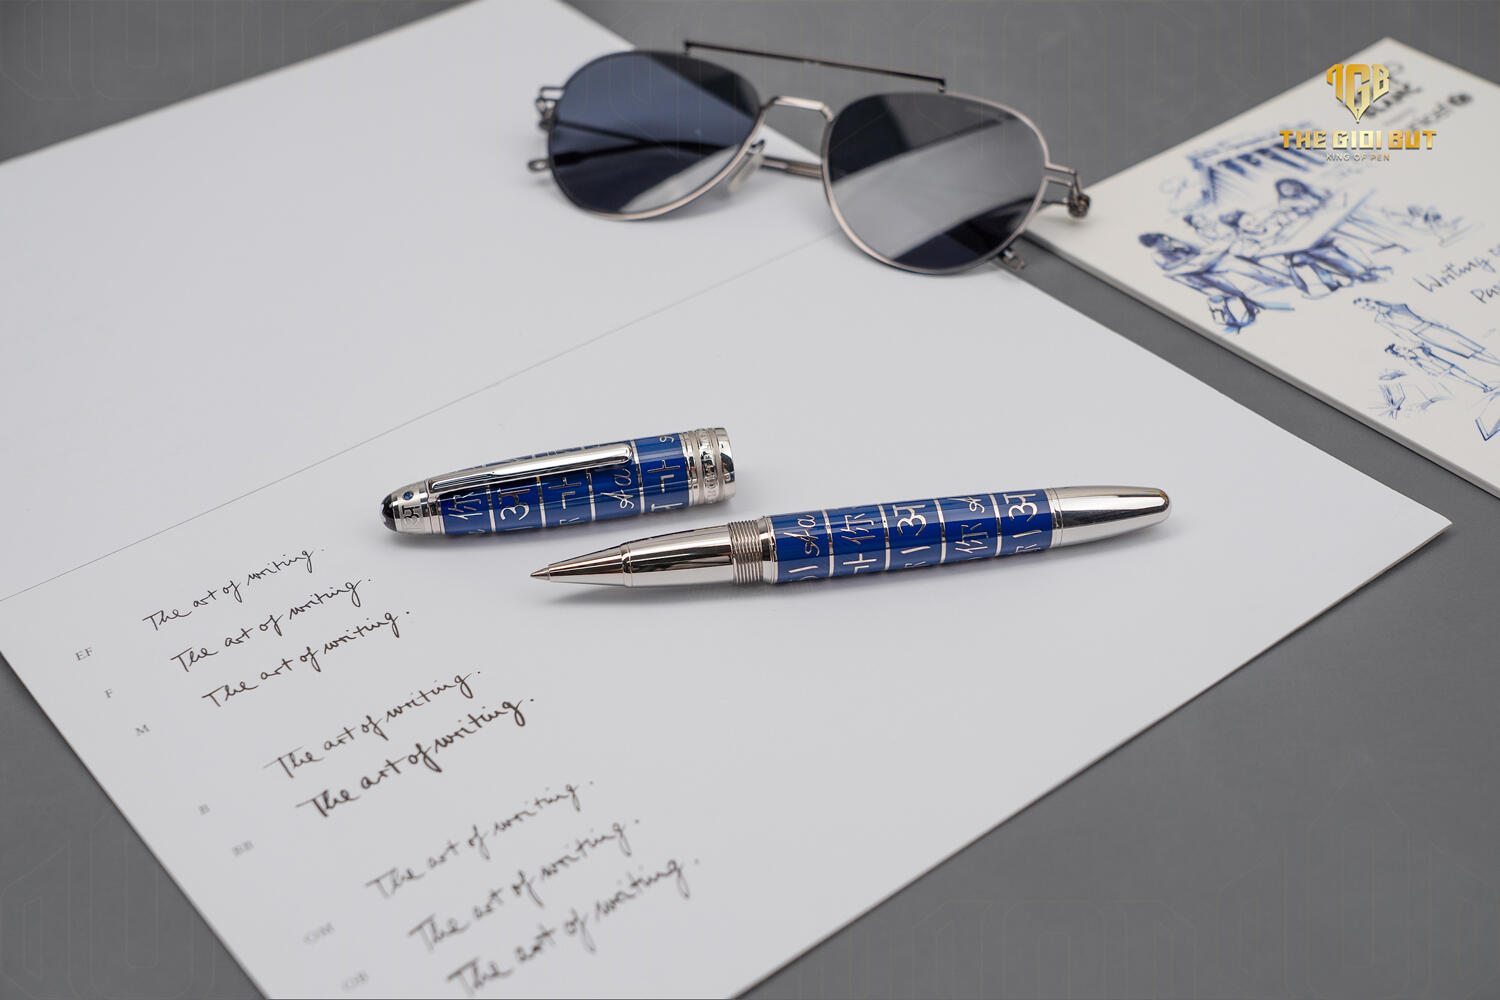 THE GIOI BUT
KING OF PEN
Writing
The art of writing.
EF
The art of writing.
F
The art of writing.
M
The art of writing.
B
The art of writing.
BB
The art of writing.
OM
The art of writing.
OB
The art of writing.
你 अ 가 Aa 가
Aa 你 अ 你 Aa अ